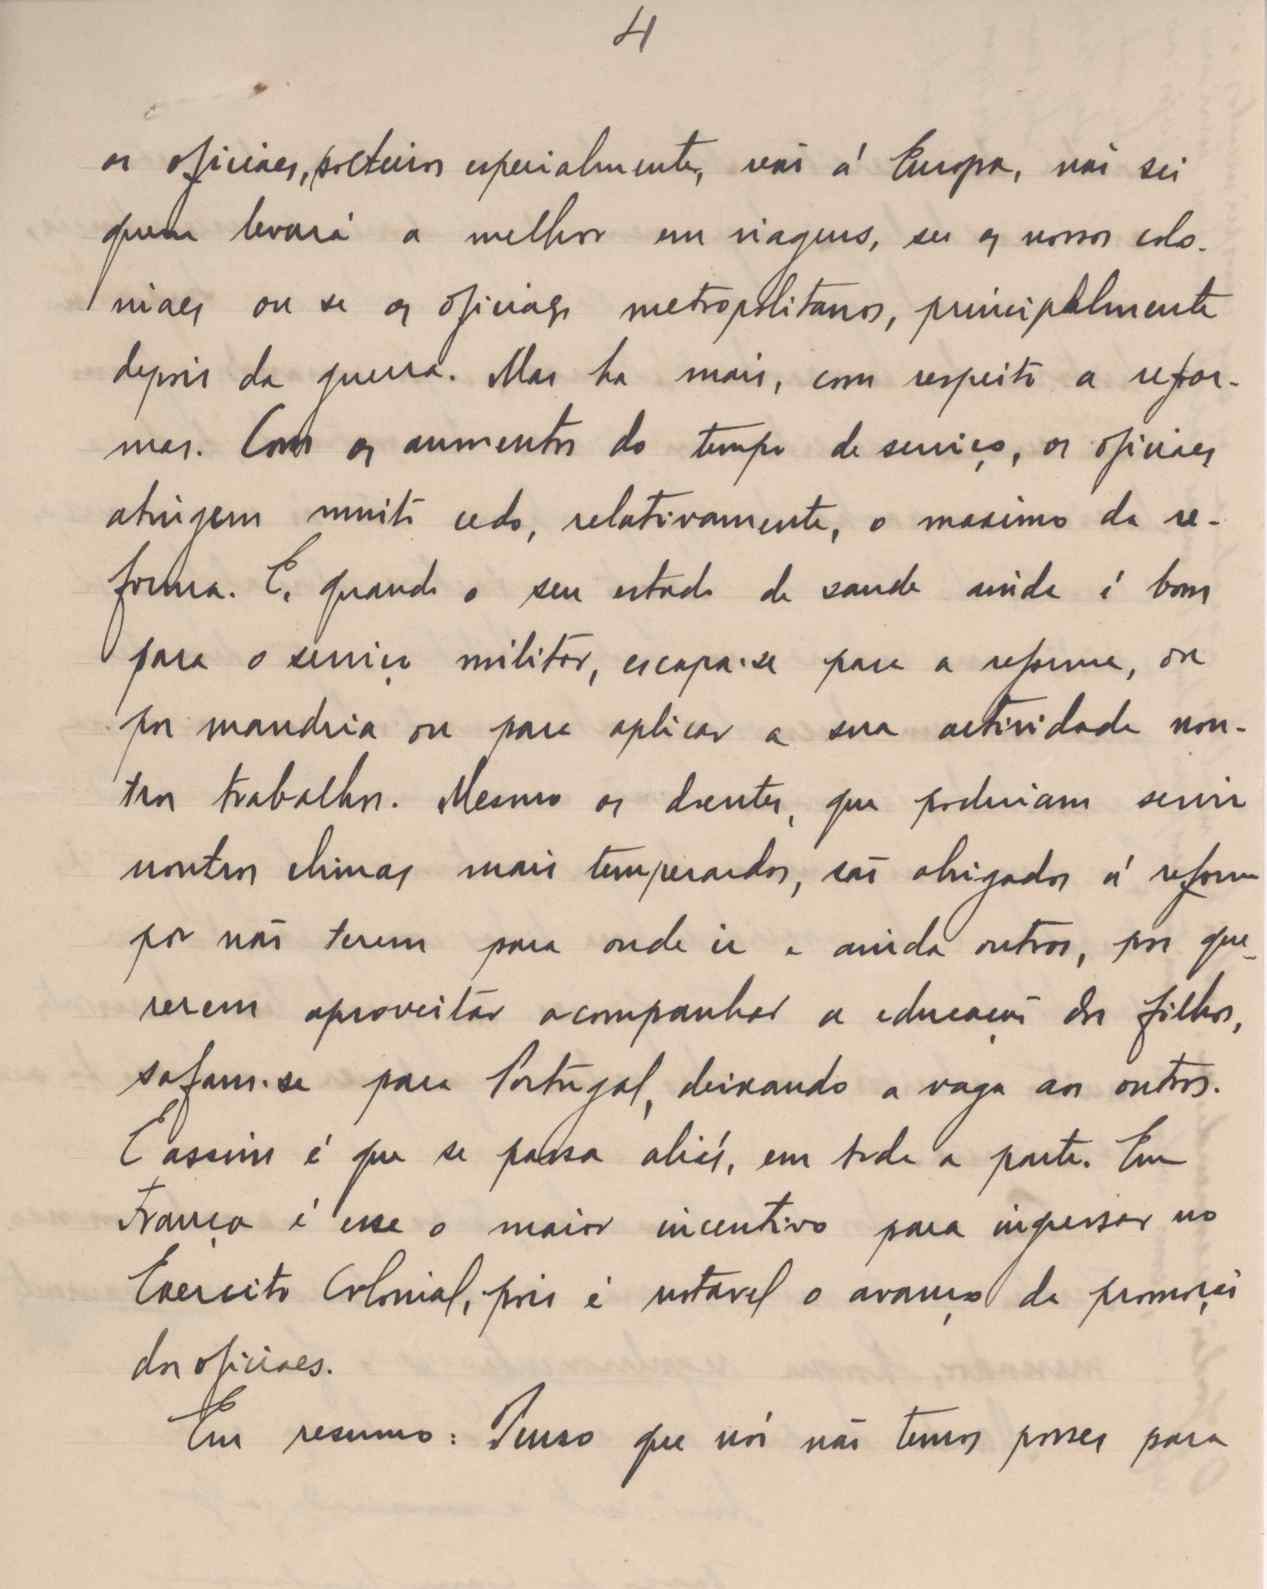 4
os oficiaes, solteiros especialmente, vão á Europa, não sei
quem levará a melhor em viagens, se os nossos colo-
niaes ou se os oficiaes metropolitanos, principalmente
depois da guerra. Mas ha mais, com respeito a refor-
mas. Com os aumentos do tempo de serviço, os oficiaes
atingem muito cedo, relativamente, o maximo da re-
forma. E, quando o seu estado de saude ainda é bom
para o serviço militar, escapa-se para a reforma, ou
por mandria ou para aplicar a sua actividade nou-
tros trabalhos. Mesmo os doentes, que poderiam servir
noutros climas mais temperados, são obrigados á reforma
por não terem para onde ir e ainda outros, por que-
rerem aproveitar acompanhar a educação dos filhos,
safam-se para Portugal, deixando a vaga aos outros.
E assim é que se passa aliás, em toda a parte. Em
França é esse o maior incentivo para ingressar no
Exercito Colonial, pois é notavel o avanço da promoção
dos oficiaes.
Em resumo: Penso que nós não temos posses para